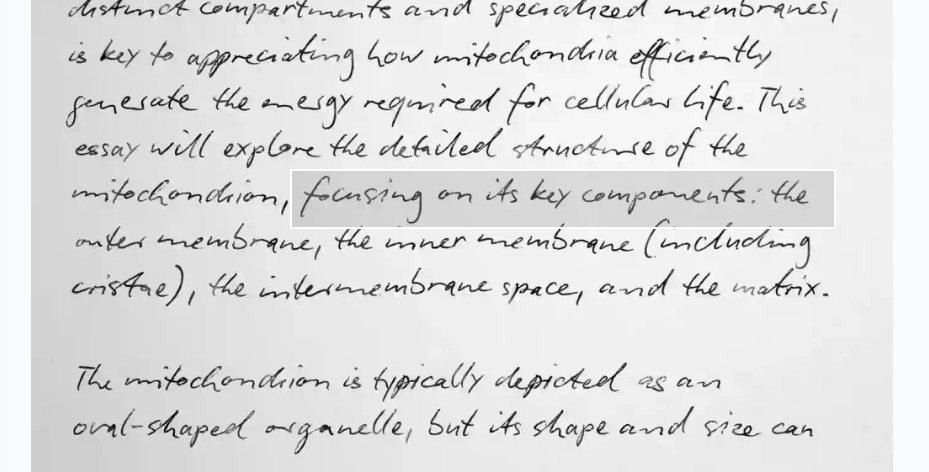 distinct compartments and specialized membranes,
is key to appreciating how mitochondria efficiently
generate the energy required for cellular life. This
essay will explore the detailed structure of the
mitochondrion, focusing on its key components: the
outer membrane, the inner membrane (including
cristae), the intermembrane space, and the matrix.
The mitochondrion is typically depicted as an
oval-shaped organelle, but its shape and size can